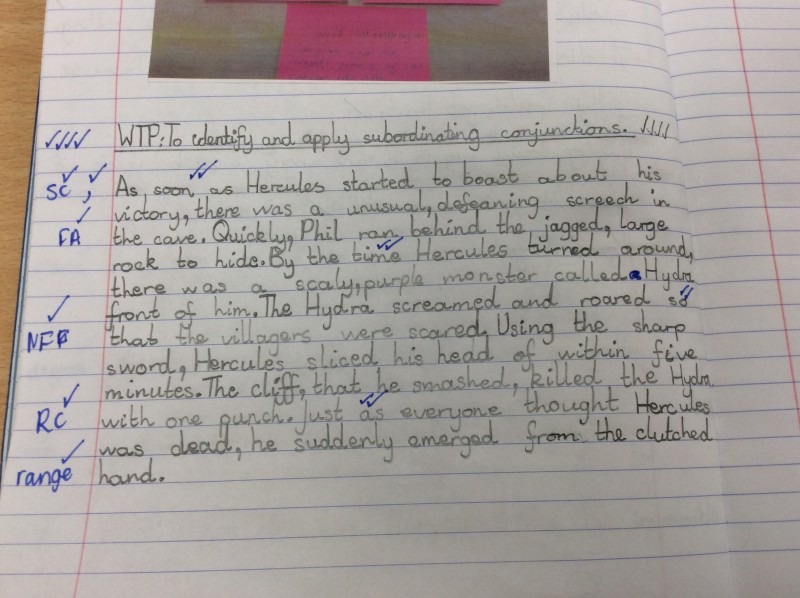 WTP: To identify and apply subordinating conjunctions.
SC, As soon as Hercules started to boast about his
victory, there was a unusual, defeaning screech in
FA the cave. Quickly, Phil ran behind the jagged, large
rock to hide. By the time Hercules turned around,
there was a scaly, purple monster called Hydra
front of him. The Hydra screamed and roared so
NFF that the villagers were scared. Using the sharp
sword, Hercules sliced his head of within five
minutes. The cliff, that he smashed, killed the Hydra
RC with one punch. Just as everyone thought Hercules
was dead, he suddenly emerged from the clutched
range hand.